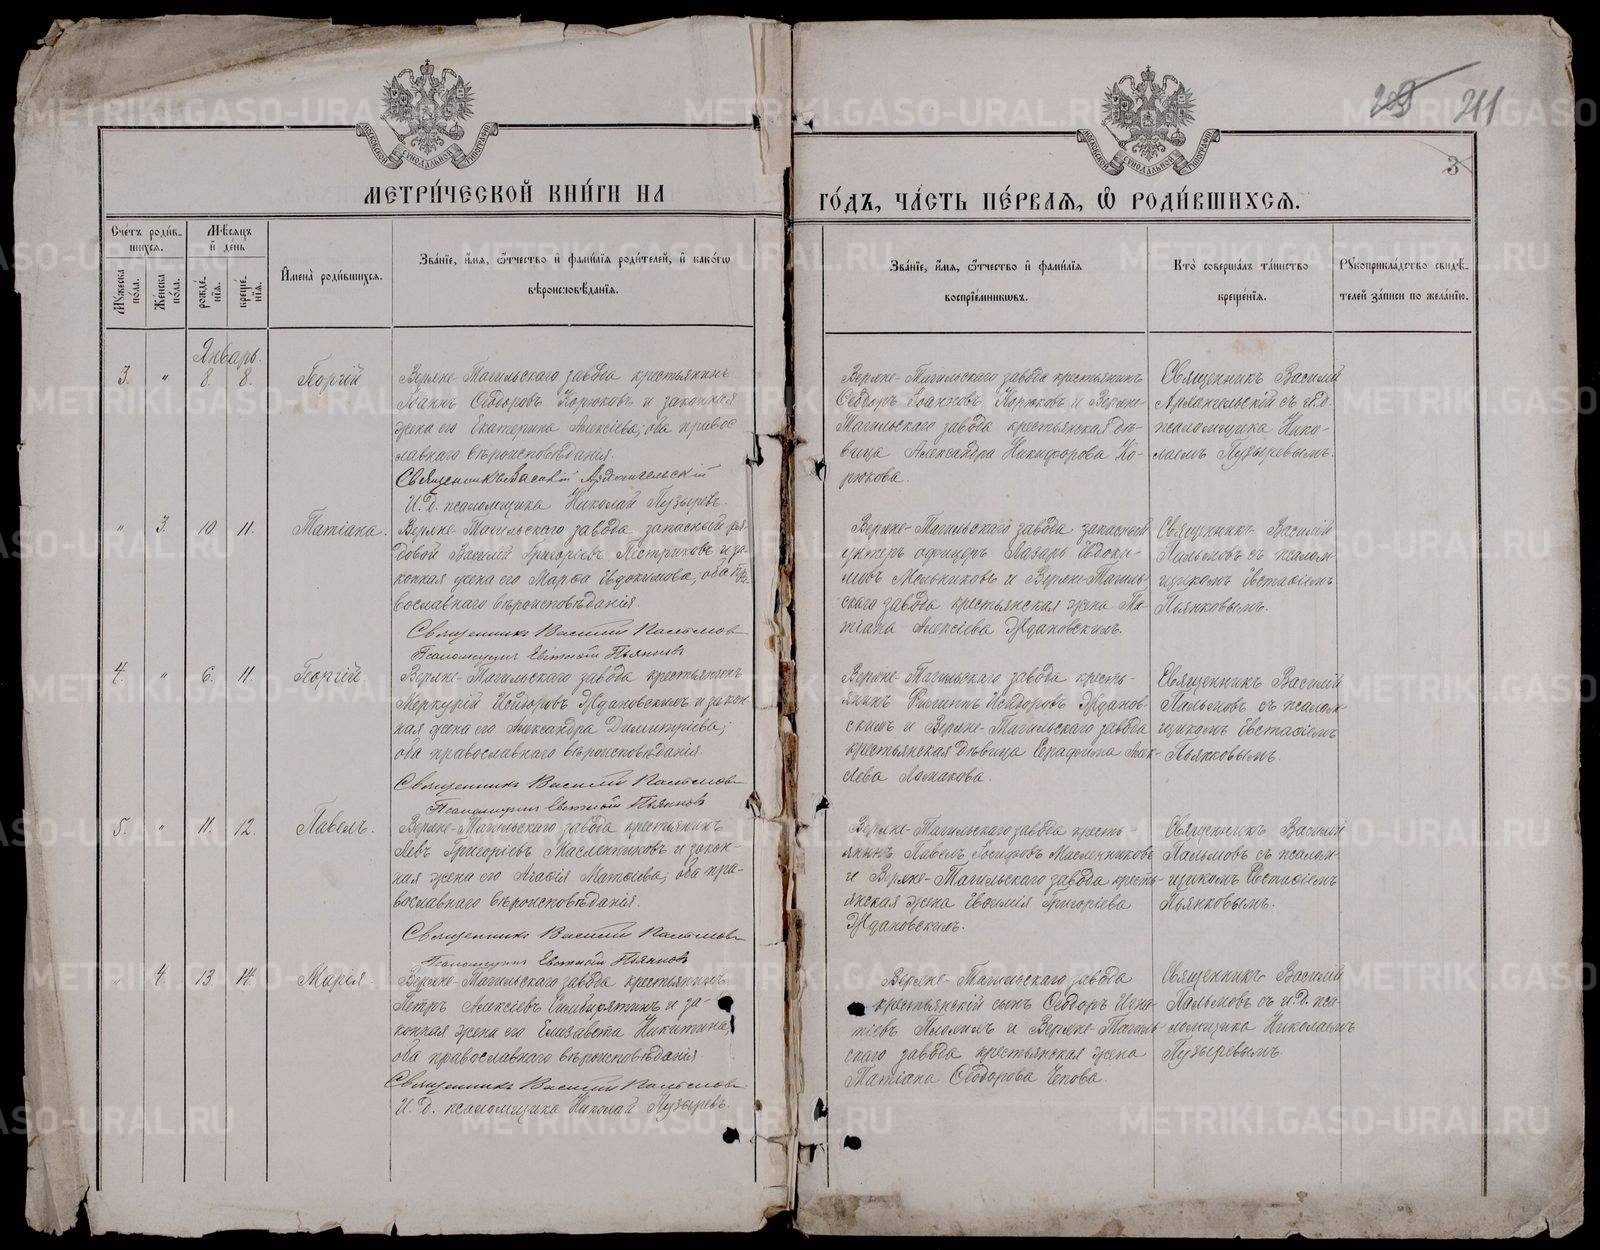 205 211
3
МОСКОВСКОЙ СѴНОДАЛЬНОЙ ТИПОГРАФІИ
МОСКОВСКОЙ СѴНОДАЛЬНОЙ ТИПОГРАФІИ
МЕТРИ́ЧЕСКОЙ КНИ́ГИ НА ГО́ДЪ, ЧА́СТЬ ПЕ́РВАѦ, Ѡ РОДИ́ВШИХСѦ.
Сче́тъ роди́в-
шихсѧ.
Мꙋжеска по́ла.
Же́нска по́ла.
Мѣ́сѧцъ
и де́нь
рожде́-
нїѧ.
креще́-
нїѧ.
И҆мена̀ роди́вшихсѧ.
Зва́нїе, и҆́мѧ, ѻ҆́тчество и҆ фами́лїѧ роди́телей, и҆ како́гѡ
вѣроисповѣ́данїѧ.
Зва́нїе, и҆́мѧ, ѻ҆́тчество и҆ фами́лїѧ
воспрїе́мникѡвъ.
Кто̀ соверша́лъ та́инство
креще́нїѧ.
Рꙋкоприкла́дство свидѣ́-
телей за́писи по жела́нїю.
Январь.
3. " 8. 8. Георгій
Верхне-Тагильскаго завода крестьянинъ
Іоаннъ Ѳеодоровъ Корюковъ и законная
жена его Екатерина Алексіева, оба правос
лавнаго вѣроисповѣданія.
Священникъ Василій Архангельскій
И. Д. псаломщика Николай Пузыревъ.
Верхне-Тагильскаго завода крестьянинъ
Ѳеодоръ Іоанновъ Корюковъ и Верхне-
Тагильскаго завода крестьянская дѣ-
вица Александра Никифорова Ко-
рюкова.
Священникъ Василій
Архангельскій съ и. д.
псаломщика Нико-
лаемъ Пузыревымъ.
" 3. 10. 11. Татіана.
Верхне-Тагильскаго завода запасный ря-
довой Василій Григоріевъ и за-
конная жена его Марѳа Евдокимова, оба пра-
вославнаго вѣроисповѣданія.
Священникъ Василій Пальмовъ
Псаломщикъ Евстафій Пьянковъ
Верхне-Тагильскаго завода запасный
унтеръ офицеръ Лазарь Евдоки-
мовъ Мельниковъ и Верхне-Тагиль-
скаго завода крестьянская жена Та-
тіана Алексіева Ждановскихъ.
Священникъ Василій
Пальмовъ съ псалом-
щикомъ Евстафіемъ
Пьянковымъ.
4. " 6. 11. Георгій
Верхне-Тагильскаго завода крестьянинъ
Меркурій Исидоровъ Ждановскихъ и закон-
ная жена его Александра Димитріева;
оба православнаго вѣроисповѣданія.
Священникъ Василій Пальмовъ
Псаломщикъ Евстафій Пьянковъ
Верхне-Тагильскаго завода кресть-
янинъ Исидоровъ Жданов-
скихъ и Верхне-Тагильскаго завода
крестьянская дѣвица Серафима Іак-
Ломакова.
Священникъ Василій
Пальмовъ съ псалом-
щикомъ Евстафіемъ
Пьянковымъ.
5. " 11. 12. Павелъ.
Верхне-Тагильскаго завода крестьянинъ
Левъ Григоріевъ Масленниковъ и закон-
ная жена его Агафія Матѳіева; оба пра-
вославнаго вѣроисповѣданія.
Священникъ Василій Пальмовъ
Псаломщикъ Евстафій Пьянковъ
Верхне-Тагильскаго завода кресть-
янинъ Павелъ Іосифовъ Масленниковъ
и Верхне-Тагильскаго завода кресть-
янская жена Евфимія Григоріева
Ждановскихъ.
Священникъ Василій
Пальмовъ съ псалом-
щикомъ Евстафіемъ
Пьянковымъ.
" 4 13. 14. Марія.
Верхне-Тагильскаго завода крестьянинъ
Петръ Алексіевъ Симбирятинъ и за-
конная жена его Елизавета Никитина,
оба православнаго вѣроисповѣданія.
Священникъ Василій Пальмовъ
И. Д. псаломщика Николай Пузыревъ.
Верхне-Тагильскаго завода
крестьянскій сынъ Ѳеодоръ Игна-
тіевъ и Верхне-Тагиль-
скаго завода крестьянская жена
Татіана Ѳеодорова Чепова.
Священникъ Василій
Пальмовъ съ и. д. пса-
ломщика Николаемъ
Пузыревымъ.
METRIKI.GASO-URAL.RU